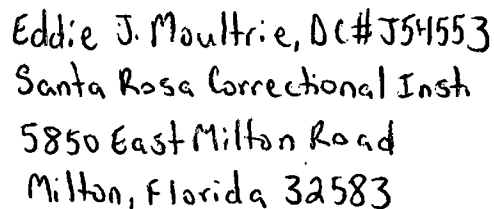 Eddie J. Moultrie, DC#J54553
Santa Rosa Correctional Inst.
5850 East Milton Road
Milton, Florida 32583